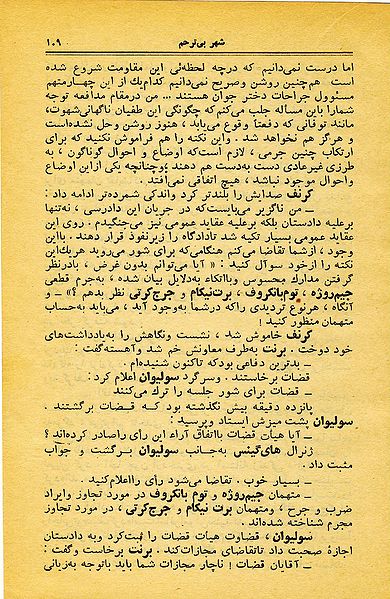 شهر بی‌ترحم ۱۰۹
اما درست نمی‌دانیم که درچه لحظه‌ئی این مقاومت شروع شده
است. همچنین روشن وصریح نمی‌دانیم کدام‌یک از این چهارمتهم
مسئوول جراحات دختر جوان هستند... من درمقام مدافعه توجه
شمارا باین مسأله جلب می‌کنم که چگونگی این طغیان ناگهانی‌شهوت،
مانند توفانی که دفعتاً وقوع می‌یابد، هنوز روشن وحل نشده‌است
و هرگز هم نخواهد شد. واین نکته را هم فراموش نکنید که برای
ارتکاب چنین جرمی، لازم است‌که اوضاع و احوال گوناگون، به
طرزی غیرعادی دست به‌دست هم دهند؛ وچنانچه یکی ازاین اوضاع
واحوال موجود نباشد، هیچ اتفاقی نمی‌افتد.
گرنف صدایش را بلندتر کرد واندکی شمرده‌تر ادامه داد:
ـ من ناگزیر می‌بایست‌که در جریان این دادرسی، نه‌تنها
برعلیه دادستان بلکه برعلیه عقاید عمومی نیز می‌جنگیدم. روی این
عقاید عمومی بسیار تکیه شد تادادگاه را زیرنفوذ قرار دهند. بااین
وجود، ازشما تقاضا می‌کنم هنگامی‌که برای شور می‌روید هریك‌این
نکته را ازخود سوآل کنید: «آیا می‌توانم بدون غرض، بادرنظر
گرفتن مدارك محسوس وبااتکاء به‌دلایل بیان شده، به‌جرم قطعی
جیم‌روژه، توم‌بانکروف، برت‌نیکام و جرج‌کرتی نظر بدهم؟» ـ و
آنگاه، هرنوع تردیدی راکه درشما به‌وجود آید، می‌باید به‌حساب
متهمان منظور کنید!
گرنف خاموش شد، نشست ونگاهش را به‌یادداشت‌های
خود دوخت. برنت به‌طرف معاونش خم شد وآهسته‌گفت:
ـ بدترین دفاعی بودکه تاکنون شنیده‌ام.
قضات برخاستند. وسرگرد سولیوان اعلام کرد:
ـ قضات برای شور جلسه را ترك می‌کنند
پانزده دقیقه بیش نگذشته بود که قضات برگشتند.
سولیوان پشت میزش ایستاد وپرسید:
ـ آیا هیأت قضات بااتفاق آراء این رأی راصادر کرده‌اند؟
ژنرال های‌گینس به‌جانب سولیوان برگشت و جواب
مثبت داد.
ـ بسیار خوب. تقاضا می‌شود رأی رااعلام‌کنید.
ـ متهمان جیم‌روژه و توم بانکروف در مورد تجاوز وایراد
ضرب و جرح، ومتهمان برت نیکام و جرج‌کرتی، در مورد تجاوز
مجرم شناخته شده‌اند.
سولیوان، قضاوت هیات قضات را ثبت‌کرد وبه دادستان
اجازهٔ صحبت داد تاتقاضای مجازات‌کند. برنت برخاست وگفت:
ـ آقایان قضات! ناچار مجازات شما باید باتوجه به‌زبانی